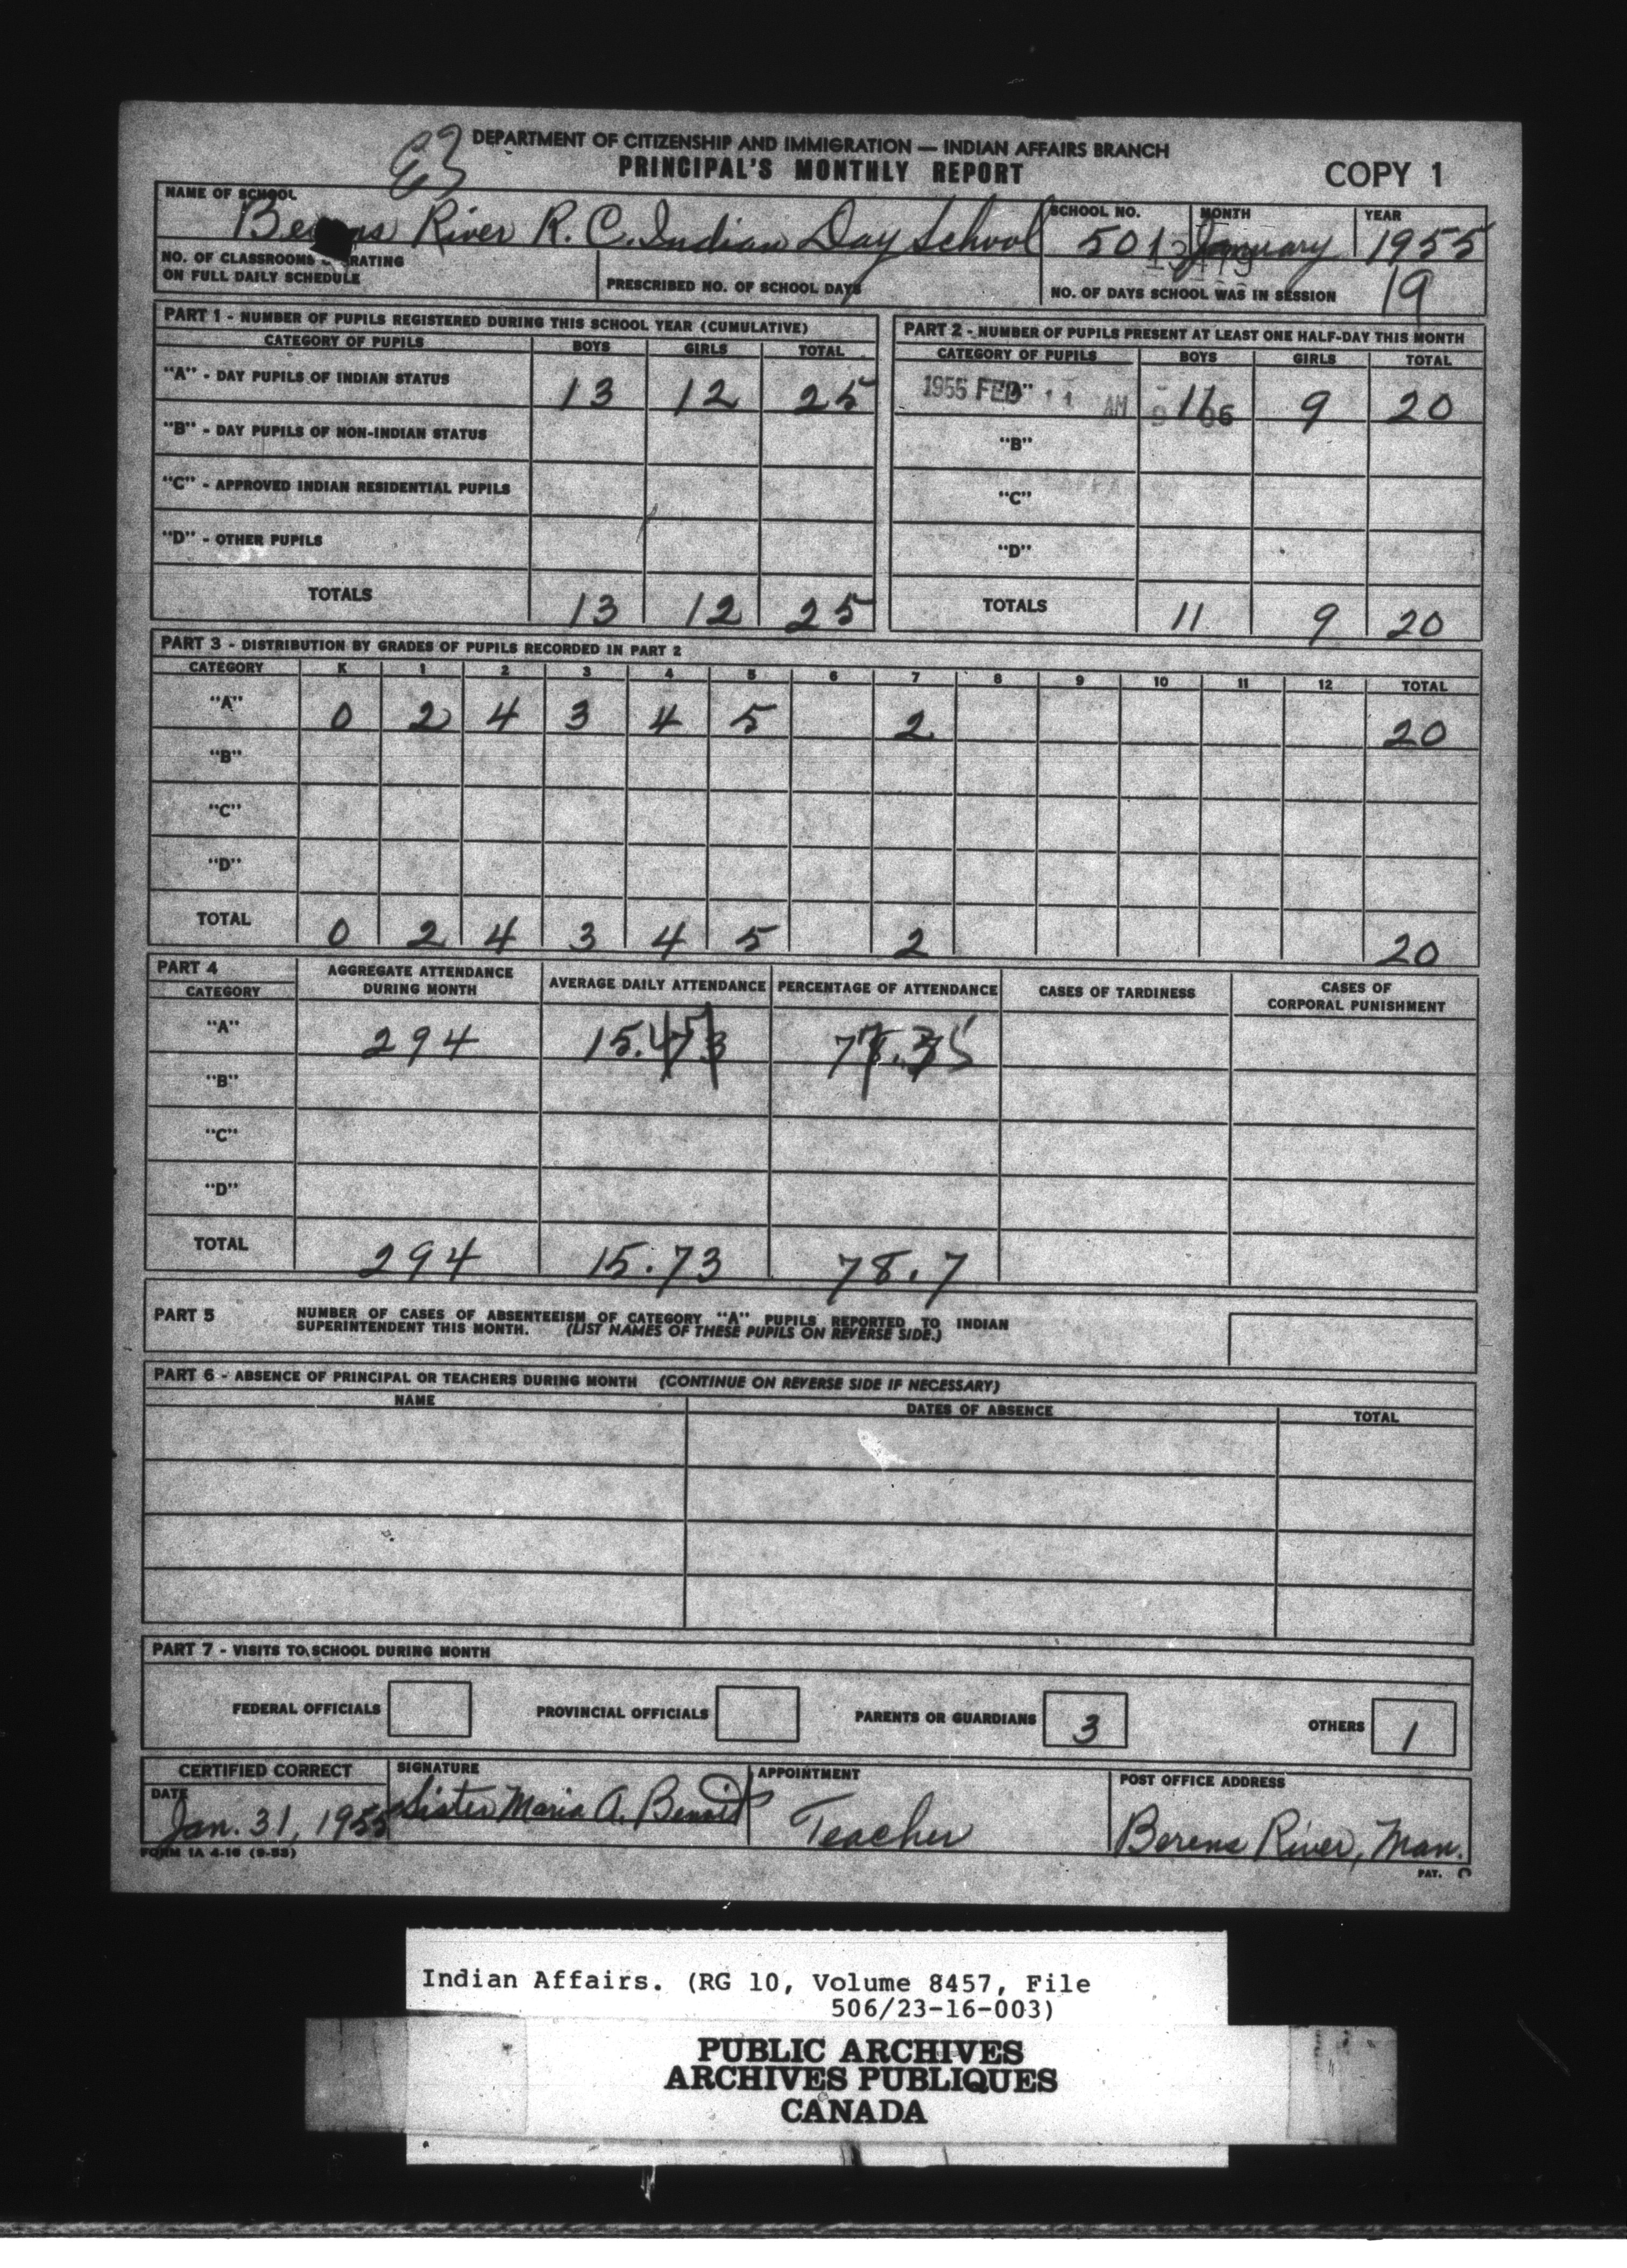 DEPARTMENT OF CITIZENSHIP AND IMMIGRATION — INDIAN AFFAIRS BRANCH
PRINCIPAL'S MONTHLY REPORT
COPY 1
NAME OF SCHOOL SCHOOL NO. MONTH YEAR
River R. C. Indian Day School 501 January 1955
NO. OF CLASSROOMS
ON FULL DAILY SCHEDULE
PRESCRIBED NO. OF SCHOOL DAYS
NO. OF DAYS SCHOOL WAS IN SESSION 19
PART 1 - NUMBER OF PUPILS REGISTERED DURING THIS SCHOOL YEAR (CUMULATIVE)
CATEGORY OF PUPILS BOYS GIRLS TOTAL
"A" - DAY PUPILS OF INDIAN STATUS 13 12 25
"B" - DAY PUPILS OF NON-INDIAN STATUS
"C" - APPROVED INDIAN RESIDENTIAL PUPILS
"D" - OTHER PUPILS
TOTALS 13 12 25
PART 2 - NUMBER OF PUPILS PRESENT AT LEAST ONE HALF-DAY THIS MONTH
CATEGORY OF PUPILS BOYS GIRLS TOTAL
1955 FEB 11 AM 9 20
"B"
"C"
"D"
TOTALS 11 9 20
PART 3 - DISTRIBUTION BY GRADES OF PUPILS RECORDED IN PART 2
CATEGORY K 1 2 3 4 5 6 7 8 9 10 11 12 TOTAL
"A" 0 2 4 3 4 5 2 20
"B"
"C"
"D"
TOTAL 0 2 4 3 4 5 2 20
PART 4
CATEGORY
AGGREGATE ATTENDANCE
DURING MONTH
AVERAGE DAILY ATTENDANCE
PERCENTAGE OF ATTENDANCE
CASES OF TARDINESS
CASES OF
CORPORAL PUNISHMENT
"A" 294
"B"
"C"
"D"
TOTAL 294 15.73 78.7
PART 5 NUMBER OF CASES OF ABSENTEEISM OF CATEGORY "A" PUPILS REPORTED TO INDIAN
SUPERINTENDENT THIS MONTH. (LIST NAMES OF THESE PUPILS ON REVERSE SIDE.)
PART 6 - ABSENCE OF PRINCIPAL OR TEACHERS DURING MONTH (CONTINUE ON REVERSE SIDE IF NECESSARY)
NAME DATES OF ABSENCE TOTAL
PART 7 - VISITS TO SCHOOL DURING MONTH
FEDERAL OFFICIALS PROVINCIAL OFFICIALS PARENTS OR GUARDIANS 3 OTHERS 1
CERTIFIED CORRECT SIGNATURE APPOINTMENT POST OFFICE ADDRESS
DATE
Jan. 31, 1955 Sister Maria A. Benoit Teacher Berens River, Man.
FORM IA 4-16 (9-53)
PAT. C
Indian Affairs. (RG 10, Volume 8457, File
506/23-16-003)
PUBLIC ARCHIVES
ARCHIVES PUBLIQUES
CANADA